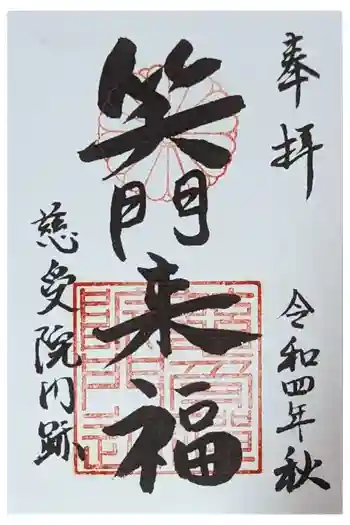 奉拝
令和四年秋
笑門来福
慈受院门跡